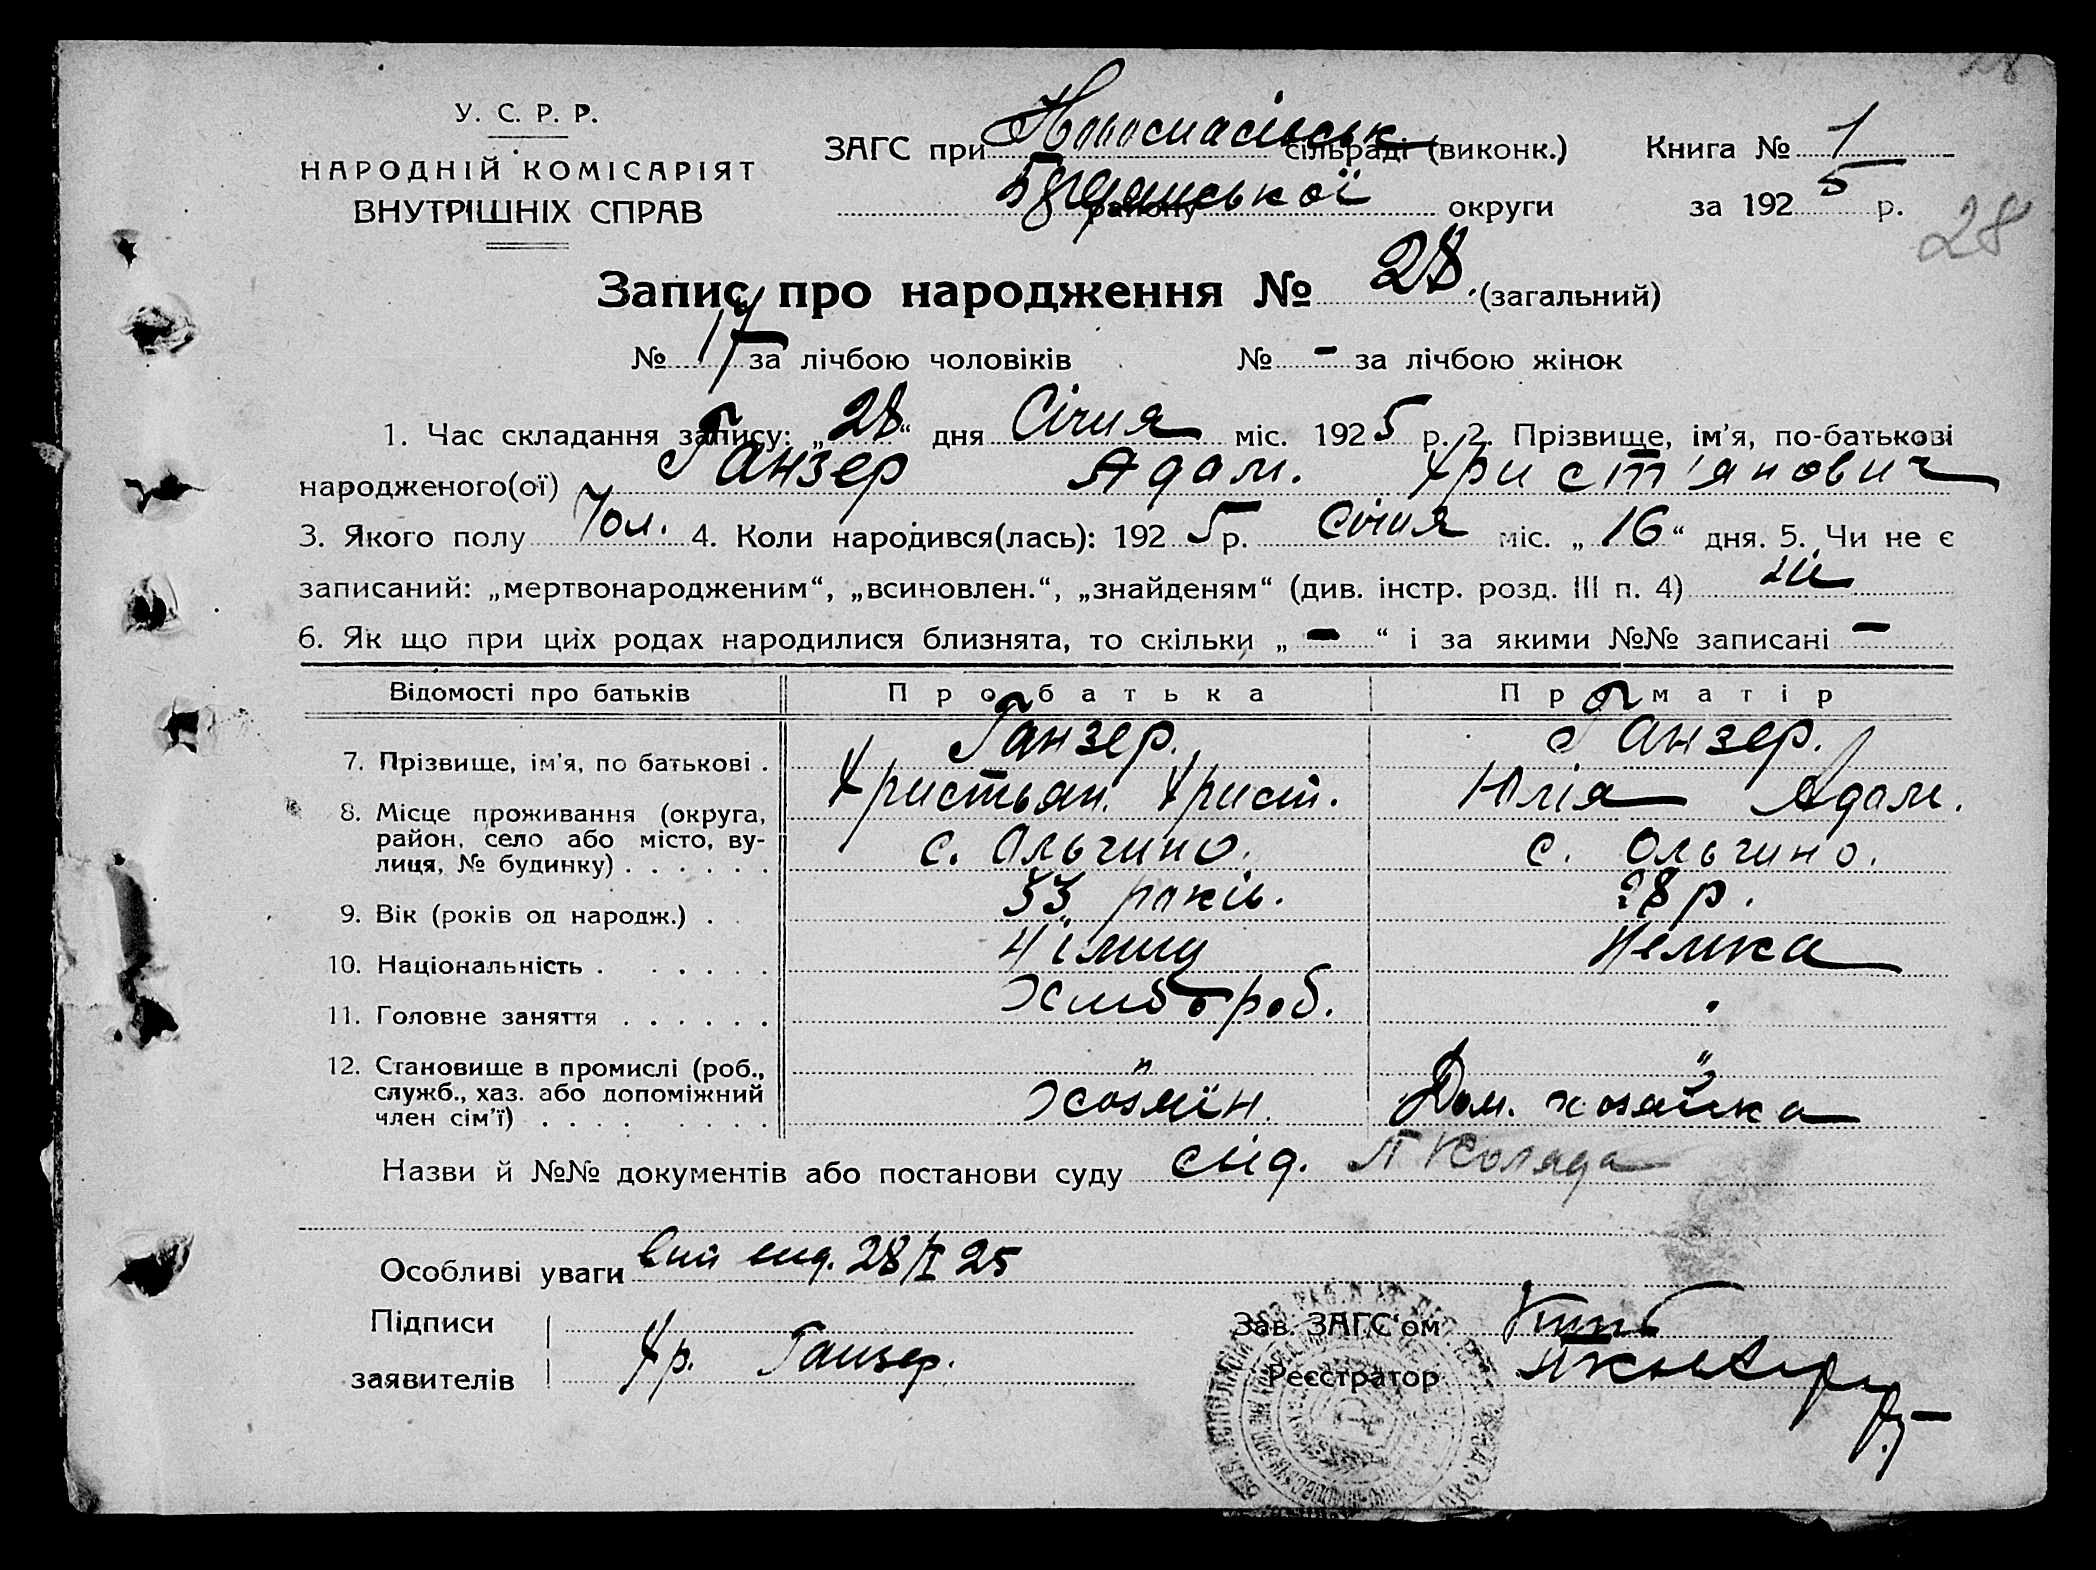 28
У. С. Р. Р.
НАРОДНІЙ КОМІСАРІЯТ
ВНУТРІШНІХ СПРАВ
ЗАГС при Новоспасівськ сільраді (виконк.)
району округи
Книга № 1
за 1925 р.
28
Запис про народження № 28 (загальний)
№ 17 за лічбою чоловіків № - за лічбою жінок
1. Час складання запису: „28“ дня Січня міс. 1925 р. 2. Прізвище, ім'я, по-батькові
народженого(ої) Ганзер Адам. Христ'янович
3. Якого полу Чол. 4. Коли народився(лась): 1925 р. Січня міс. „16“ дня. 5. Чи не є
записаний: „мертвонародженим“, „всиновлен.“, „знайденям“ (див. інстр. розд. III п. 4) ні
6. Як що при цих родах народилися близнята, то скільки „-“ і за якими №№ записані -
Відомості про батьків Про батька Про матір
7. Прізвище, ім'я, по батькові . Ганзер. Ганзер.
Христьян. Христ. Юлія Адам.
8. Місце проживання (округа, район, село або місто, вулиця, № будинку) . . . . . . с. Ольгино. с. Ольгино.
9. Вік (років од народж.) . 33 років. 28 р.
10. Національність . . . . . . Німец Немка
11. Головне заняття . . . . . . Хлібороб.
12. Становище в промислі (роб., служб., хаз. або допоміжний член сім'ї) . . . . . . . . " Хозяїн. " Дом. хозяйка
Назви й №№ документів або постанови суду Коляда
Особливі уваги 28/I 25
Підписи
заявителів Хр. Ганзер.
Зав. ЗАГС'ом
Реєстратор